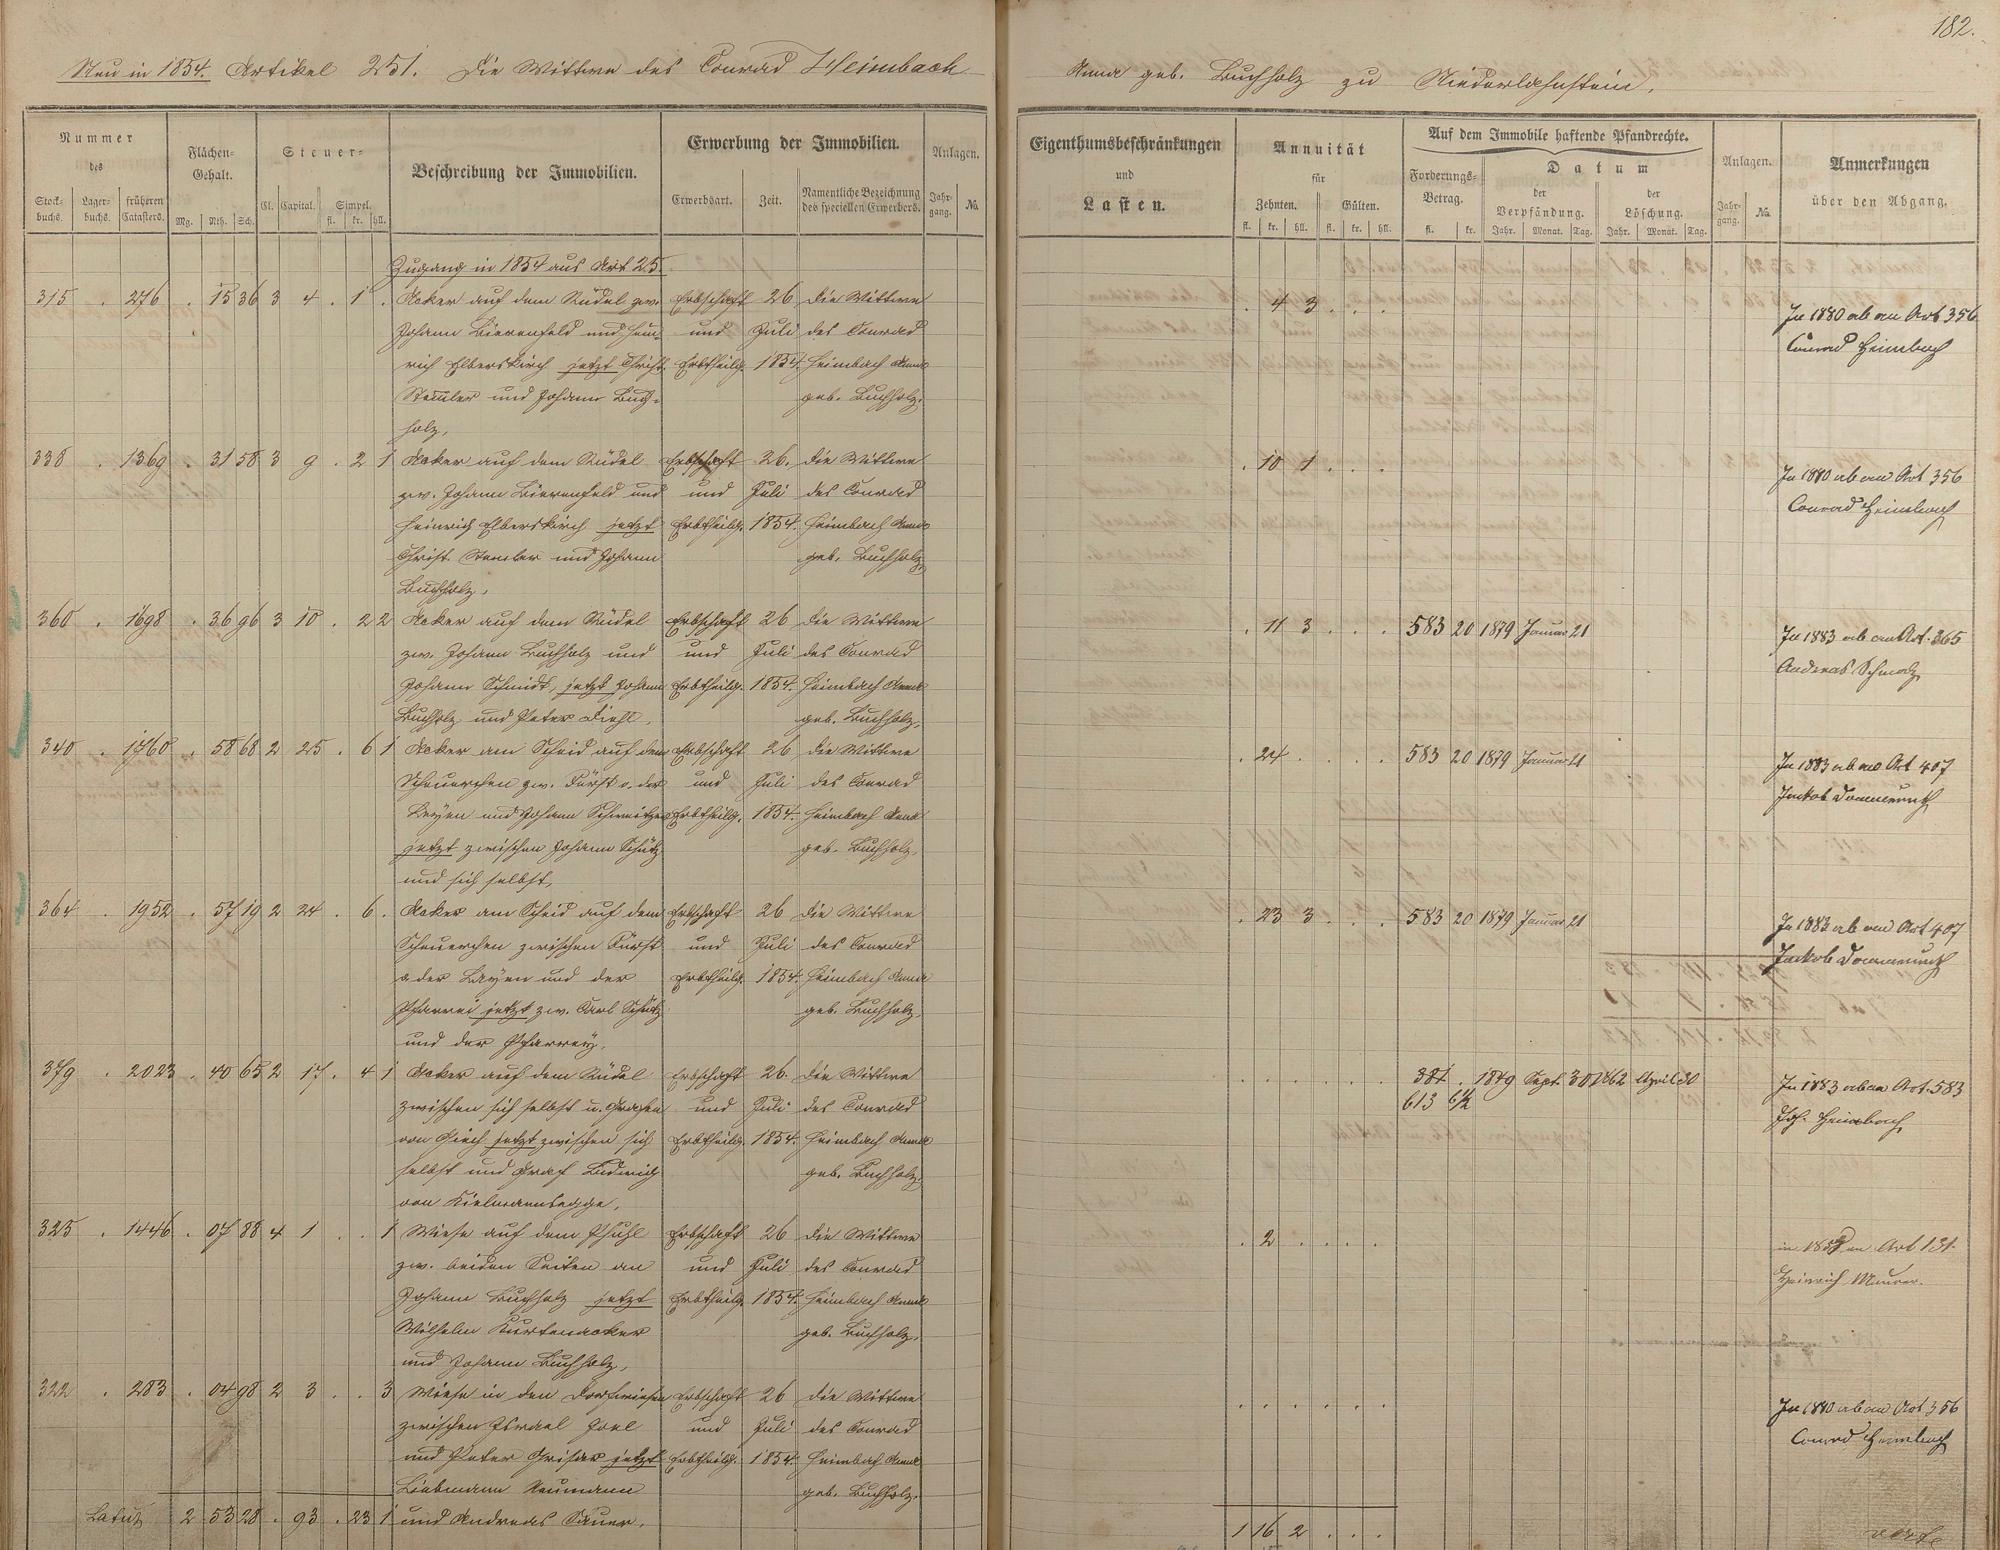 182.
Neu in 1854. Artikel 251. Die Wittwe des Conrad Heimbach
Anna geb. Buchholz zu Niederlahnstein.
Nummer
des
Stock-
buchs.
Lager-
buchs.
früheren
Catasters.
Flächen-
Gehalt.
Mg. Rth. Sch.
Steuer-
Cl. Capital. Simpel.
fl. kr. hll.
Beschreibung der Immobilien.
Erwerbung der Immobilien.
Erwerbsart. Zeit. Namentliche Bezeichnung
des speciellen Erwerbers.
Anlagen.
Jahr-
gang. No.
Eigenthumsbeschränkungen
und
Lasten.
Annuität
für
Zehnten. Gülten.
fl. kr. hll. fl. kr. hll.
Auf dem Immobile haftende Pfandrechte.
Forderungs-
Betrag.
fl. kr.
Datum
der
Verpfändung.
der
Löschung.
Jahr. Monat. Tag. Jahr. Monat. Tag.
Anlagen.
Jahr-
gang. No.
Anmerkungen
über den Abgang.
Zugang in 1854 aus Art 25
315 . 276 . 15 36 3 4 . 1 . Acker auf dem Rüdel zw. Erbschaft 26 die Wittwe . 4 3 . . . In 1880 ab an Art 356
Johann Bierenfeld und Hein- und Juli des Conrad Conrad Heimbach
rich Elberskirch jetzt Christ. Erbtheilg. 1854. Heimbach Anna
Stemler und Johann Buch- geb. Buchholz.
holz,
338 . 1369 . 31 58 3 9 . 2 1 Acker auf dem Rüdel Erbschaft 26. die Wittwe . 10 1 . . . In 1880 ab an Art 356
zw. Johann Bierenfeld und und Juli des Conrad Conrad Heimbach
Heinrich Elberskirch jetzt Erbtheilg. 1854. Heimbach Anna
Christ. Stemler und Johann geb. Buchholz.
Buchholz.
360 . 1698 . 36 96 3 10 . 2 2 Acker auf dem Rüdel Erbschaft 26 die Wittwe . 11 3 . . . 583 20 1879 Januar 21 In 1883 ab an Art. 365
zw. Johann Buchholz und und Juli des Conrad Andreas Schmolz
Johann Schmidt, jetzt Johann Erbtheilg. 1854. Heimbach Anna
Buchholz und Peter Diehl. geb. Buchholz.
340 . 1760 . 58 68 2 25 . 6 1 Acker am Scheid auf dem Erbschaft 26 die Wittwe . 24 . . . . 583 20 1879 Januar 21 In 1883 ab an Art 407
Scheuerchen zw. Fürst v. der und Juli des Conrad Jakob Dommermuth
Leyen und Johann Schweitzer Erbtheilg. 1854. Heimbach Anna
jetzt zwischen Johann Schütz geb. Buchholz.
und sich selbst,
364 . 1952 . 57 19 2 24 . 6 . Acker am Scheid auf dem Erbschaft 26 die Wittwe . 23 3 . . . 583 20 1879 Januar 21 In 1883 ab an Art 407
Scheuerchen zwischen Fürst und Juli des Conrad Jakob Dommermuth
v der Leyen und der Erbtheilg. 1854. Heimbach Anna
Pfarrei jetzt zw. Carl Schütz geb. Buchholz.
und der Pfarrey.
379 . 2023 . 40 65 2 17 . 4 1 Acker auf dem Rüdel Erbschaft 26. die Wittwe . . . . . . 381 . 1849 Sept. 30 1862 April 30 In 1883 ab an Art. 583
zwischen sich selbst u. Grafen und Juli des Conrad 613 6½ Joh. Heimbach
von Giech jetzt zwischen sich Erbtheilg. 1854. Heimbach Anna
selbst und Graf Ludwig geb. Buchholz.
von Kielmannsegge,
325 . 1446 . 07 88 4 1 . . 1 Wiese auf dem Pfuhl Erbschaft 26 die Wittwe . 2 . . . . an Art 131.
zw. beiden Seiten an und Juli des Conrad Heinrich Maurer.
Johann Buchholz jetzt Erbtheilg. 1854. Heimbach Anna
Wilhelm Kurtenacker geb. Buchholz.
und Johann Buchholz,
322 . 283 . 04 98 2 3 . . 3 Wiese in den Dorfwiesen Erbschaft 26 die Wittwe . . . . . . In 1880 ab an Art 356
zwischen Israel Joel und Juli des Conrad Conrad Heimbach
und Peter Grisar jetzt Erbtheilg. 1854. Heimbach Anna
Liebmann Neumann geb. Buchholz.
Latus 2 53 28 . 93 . 23 1 und Andreas Sauer. 1 16 2 . . . verte